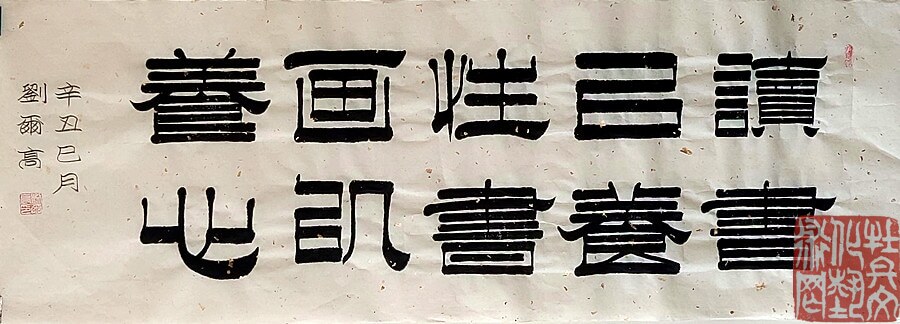 讀書
㠯養
性書
画以
養心
辛丑巳月
劉爾高